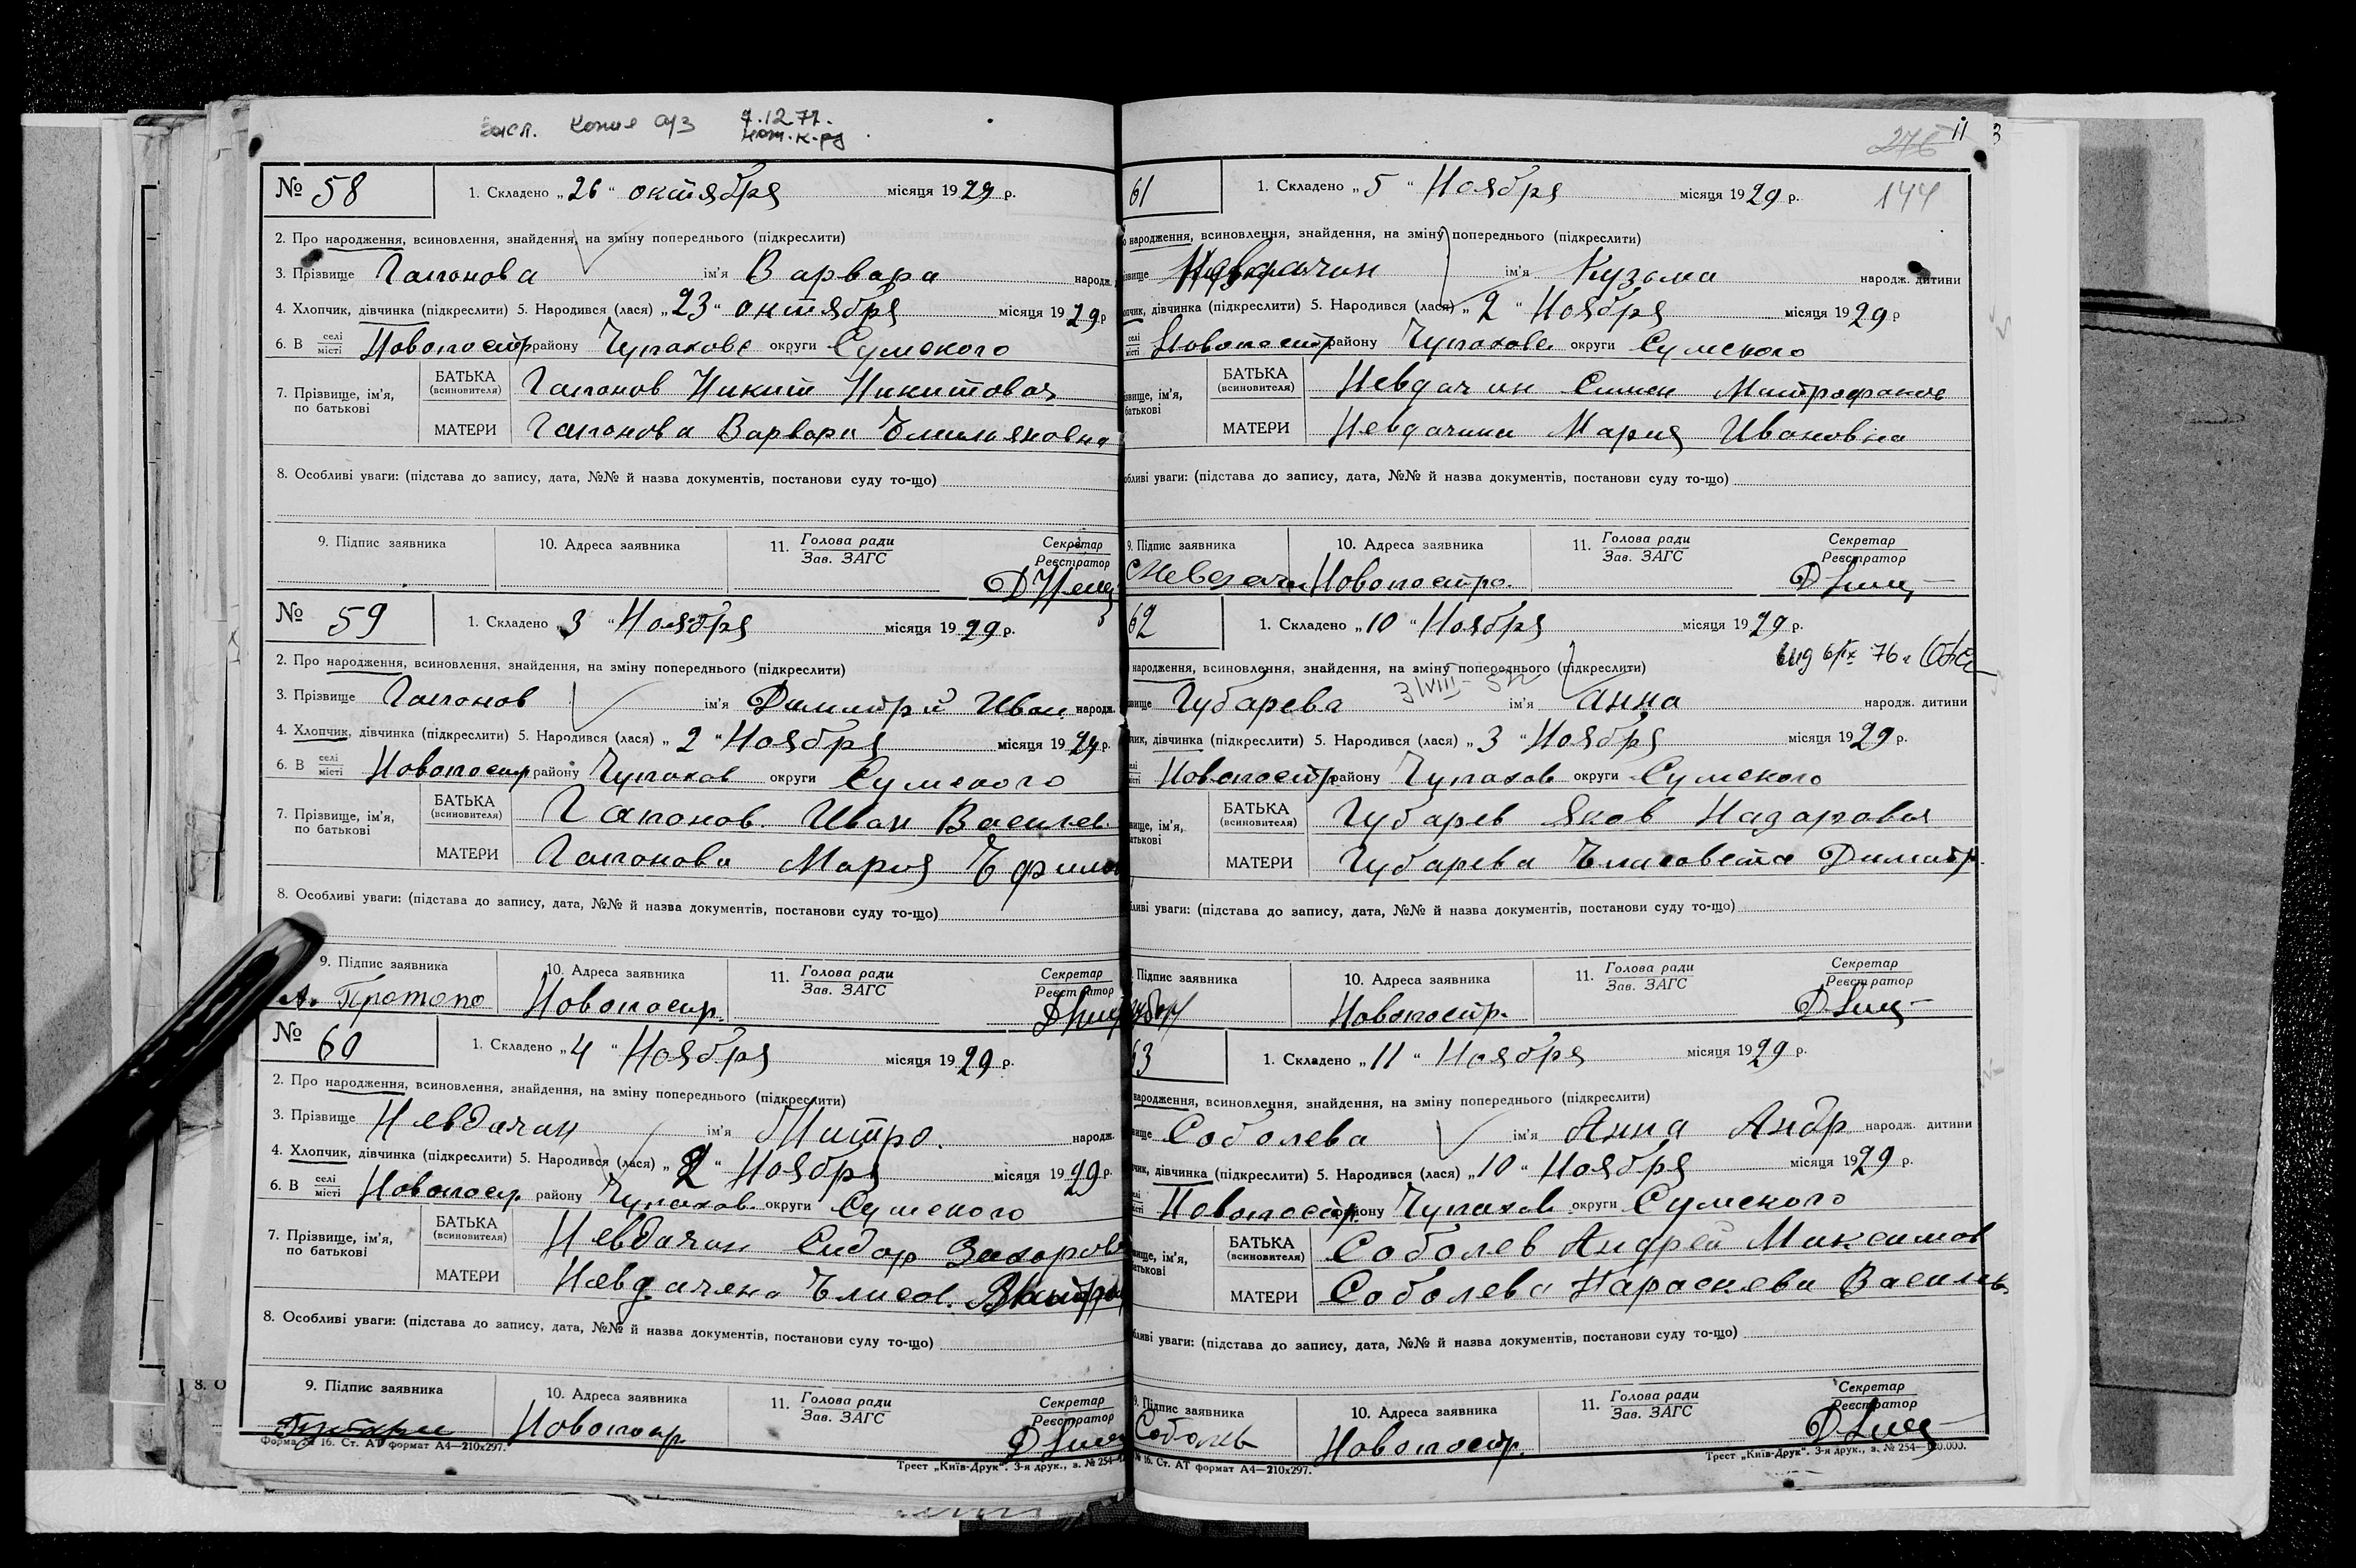 Копия а/з 7.12.77.
№ 58
1. Складено „26“ октября місяця 1929 р.
2. Про народження, всиновлення, знайдення, на зміну попереднього (підкреслити)
3. Прізвище Гапонова ім'я Варвара народж.
4. Хлопчик, дівчинка (підкреслити) 5. Народився (лася) „23“ октября місяця 1929 р
6. В селі/місті Новопостр району Чупахове округи Сумского
7. Прізвище, ім'я, по батькові
БАТЬКА (всиновителя) Гапонов Никит Никитовоч
МАТЕРИ Гапонова Варвара Емильяновна
8. Особливі уваги: (підстава до запису, дата, №№ й назва документів, постанови суду то-що)
9. Підпис заявника 10. Адреса заявника 11. Голова ради/Зав. ЗАГС Секретар/Реєстратор
№ 59
1. Складено „3“ Ноября місяця 1929 р.
2. Про народження, всиновлення, знайдення, на зміну попереднього (підкреслити)
3. Прізвище Гапонов ім'я Димитрий Иван народж.
4. Хлопчик, дівчинка (підкреслити) 5. Народився (лася) „2“ Ноября місяця 1929 р.
6. В селі/місті Новопостр району Чупахов округи Сумского
7. Прізвище, ім'я, по батькові
БАТЬКА (всиновителя) Гапонов Иван Васильев.
МАТЕРИ Гапонова Мария Ефимов
8. Особливі уваги: (підстава до запису, дата, №№ й назва документів, постанови суду то-що)
9. Підпис заявника 10. Адреса заявника 11. Голова ради/Зав. ЗАГС Секретар/Реєстратор
А. Протопо Новопостр.
№ 60
1. Складено „4“ Ноября місяця 1929 р.
2. Про народження, всиновлення, знайдення, на зміну попереднього (підкреслити)
3. Прізвище Невдачин ім'я Митро. народж.
4. Хлопчик, дівчинка (підкреслити) 5. Народився (лася) „2“ Ноября місяця 1929 р.
6. В селі/місті Новопостр району Чупахов. округи Сумского
7. Прізвище, ім'я, по батькові
БАТЬКА (всиновителя) Невдачин Сидор Захарове
МАТЕРИ Невдачена Елисов.
8. Особливі уваги: (підстава до запису, дата, №№ й назва документів, постанови суду то-що)
9. Підпис заявника 10. Адреса заявника 11. Голова ради/Зав. ЗАГС Секретар/Реєстратор
Новопостр.
Форма № 16. Ст. АТ формат А4—210х297.
Трест „Київ-Друк“. 3-я друк., з. № 254
276 11 3
144
61
1. Складено „5“ Ноября місяця 1929 р.
народження, всиновлення, знайдення, на зміну попереднього (підкреслити)
ім'я Кузьма народж. дитини
дівчинка (підкреслити) 5. Народився (лася) „2“ Ноября місяця 1929 р
Новопостр району Чупахове округи Сумского
БАТЬКА (всиновителя) Невдачин Симен Митрофанов
МАТЕРИ Невдачина Мария Ивановна
уваги: (підстава до запису, дата, №№ й назва документів, постанови суду то-що)
9. Підпис заявника 10. Адреса заявника 11. Голова ради/Зав. ЗАГС Секретар/Реєстратор
Новопостро.
62
1. Складено „10“ Ноября місяця 1929 р.
народження, всиновлення, знайдення, на зміну попереднього (підкреслити)
Губарева ім'я Анна народж. дитини
дівчинка (підкреслити) 5. Народився (лася) „3“ Ноября місяця 1929 р.
Новопостр району Чупахов округи Сумского
БАТЬКА (всиновителя) Губарев Яков Назаровоч
МАТЕРИ Губарева Елисовета Димитр.
уваги: (підстава до запису, дата, №№ й назва документів, постанови суду то-що)
Підпис заявника 10. Адреса заявника 11. Голова ради/Зав. ЗАГС Секретар/Реєстратор
Новопостр.
63
1. Складено „11“ Ноября місяця 1929 р.
народження, всиновлення, знайдення, на зміну попереднього (підкреслити)
Соболева ім'я Анна Андр народж. дитини
дівчинка (підкреслити) 5. Народився (лася) „10“ Ноября місяця 1929 р.
Новопостр. району Чупахов округи Сумского
БАТЬКА (всиновителя) Соболев Андрей Максимов
МАТЕРИ Соболева Параскева Василь
уваги: (підстава до запису, дата, №№ й назва документів, постанови суду то-що)
9. Підпис заявника 10. Адреса заявника 11. Голова ради/Зав. ЗАГС Секретар/Реєстратор
Соболев Новопостр.
№ 16. Ст. АТ формат А4—210х297.
Трест „Київ-Друк“. 3-я друк., з. № 254—120.000.